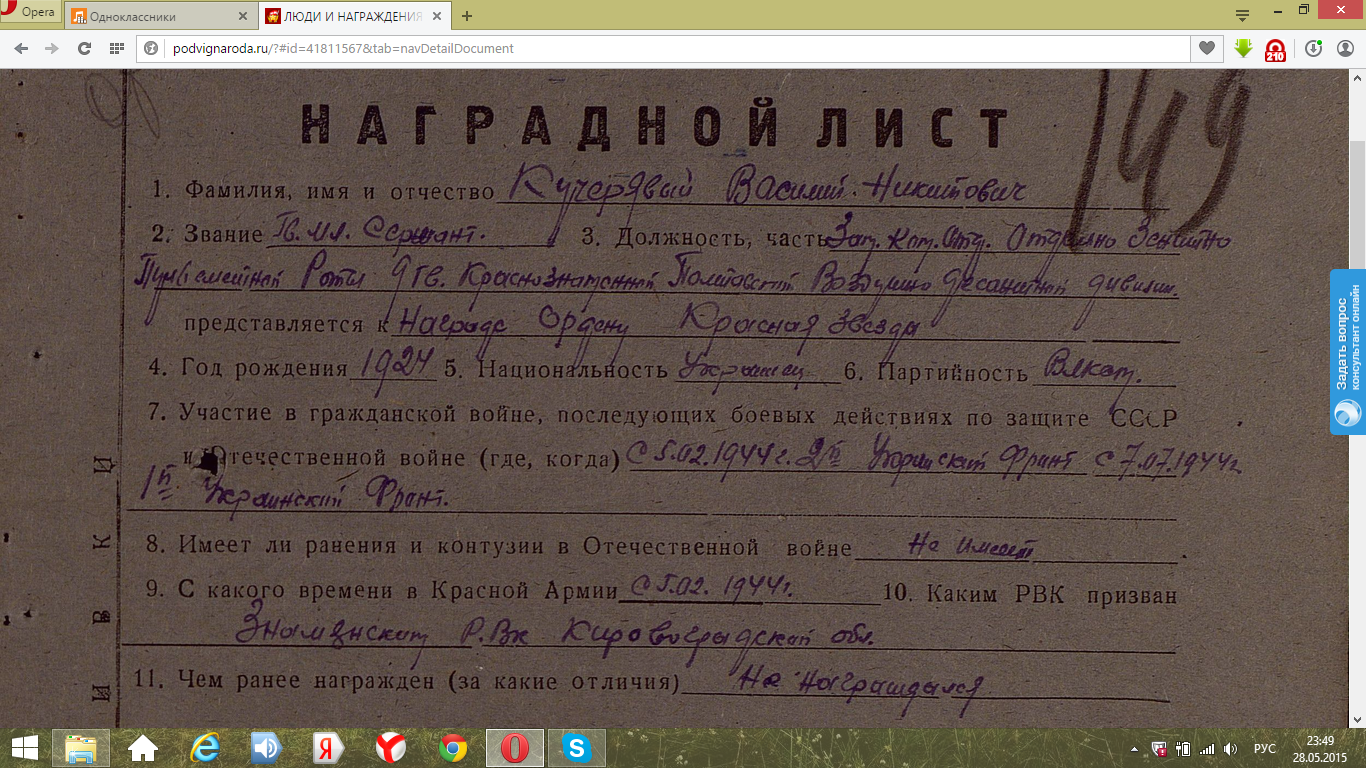 Opera
Одноклассники
ЛЮДИ И НАГРАЖДЕНИЯ
podvignaroda.ru/?#id=41811567&tab=navDetailDocument
210
149
НАГРАДНОЙ ЛИСТ
1. Фамилия, имя и отчество Кучерявый Василий Никитович
2. Звание Гв. мл. Сержант. 3. Должность, часть Зам. Ком. Отд. Отдельно Зенитно
Пулеметной Роты 9 Гв. Краснознаменной Полтавской Воздушно десантной дивизии.
представляется к Награде Ордену Красная Звезда
4. Год рождения 1924 5. Национальность Украинец 6. Партийность Влксм.
7. Участие в гражданской войне, последующих боевых действиях по защите СССР
и Отечественной войне (где, когда) С 5.02.1944г. 2й Украинский Фронт с 7.07.1944г
1й Украинский Фронт.
8. Имеет ли ранения и контузии в Отечественной войне Не имеет
9. С какого времени в Красной Армии С 5.02. 1944г. 10. Каким РВК призван
Знаменским Р.Вк Кировоградской обл.
11. Чем ранее награжден (за какие отличия) Не награждался
И В К И
Задать вопрос
консультант онлайн
РУС
23:49
28.05.2015